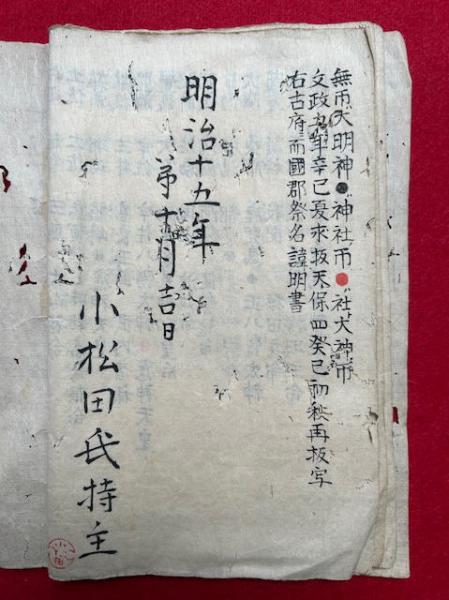 無印大明神●神社印●社大神印
文政年辛巳夏求板天保四癸巳初秋再板写
右古府而國郡祭名證明書
明治十五年
第十月吉日
小松田氏持主